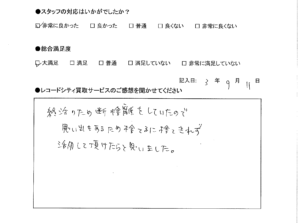 ●スタッフの対応はいかがでしたか？
☑非常に良かった □良かった □普通 □良くない □非常に良くない
●総合満足度
☑大満足 □満足 □普通 □満足していない □非常に満足していない
記入日: 3年 9月 11日
●レコードシティ買取サービスのご感想を聞かせてください
終活のため断捨離をしていたので
思い出もあるため捨てるに捨てきれず
活用して頂けたらと思いました。